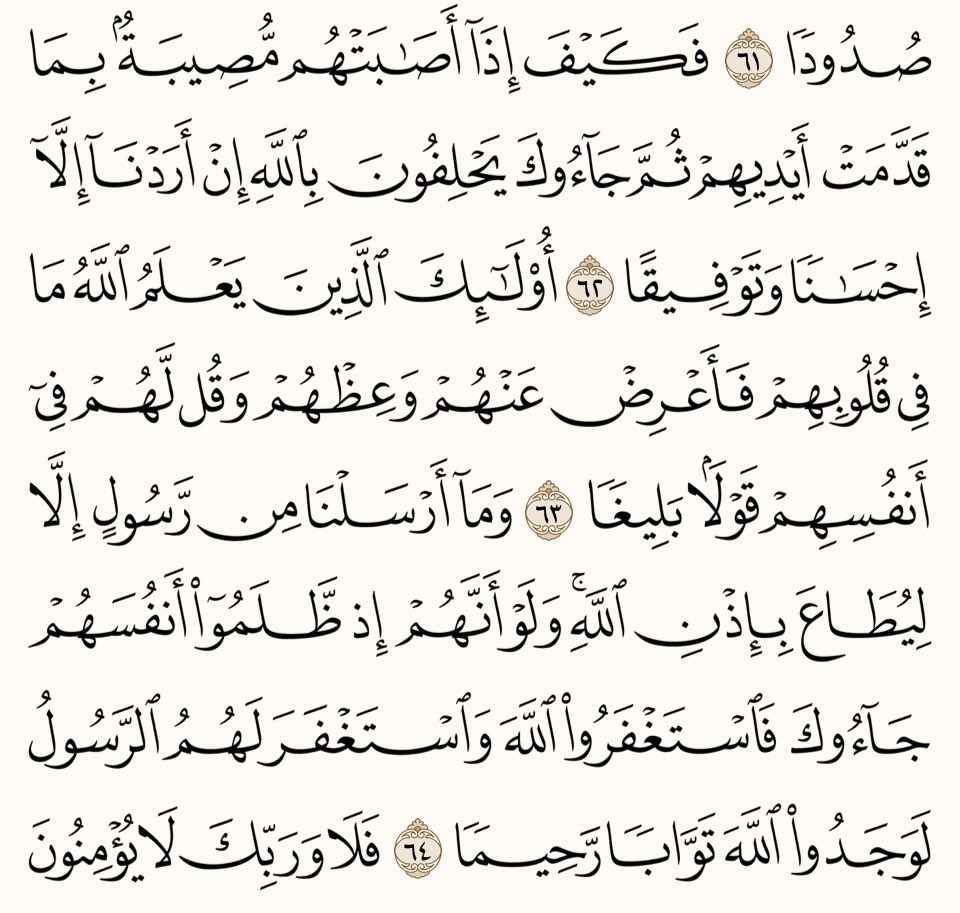 صُدُودًا ٦١ فَكَيْفَ إِذَآ أَصَٰبَتْهُم مُّصِيبَةُۢ بِمَا
قَدَّمَتْ أَيْدِيهِمْ ثُمَّ جَآءُوكَ يَحْلِفُونَ بِٱللَّهِ إِنْ أَرَدْنَآ إِلَّآ
إِحْسَٰنًا وَتَوْفِيقًا ٦٢ أُو۟لَٰٓئِكَ ٱلَّذِينَ يَعْلَمُ ٱللَّهُ مَا
فِى قُلُوبِهِمْ فَأَعْرِضْ عَنْهُمْ وَعِظْهُمْ وَقُل لَّهُمْ فِىٓ
أَنفُسِهِمْ قَوْلَۢا بَلِيغًا ٦٣ وَمَآ أَرْسَلْنَا مِن رَّسُولٍ إِلَّا
لِيُطَاعَ بِإِذْنِ ٱللَّهِ ۚ وَلَوْ أَنَّهُمْ إِذ ظَّلَمُوٓا۟ أَنفُسَهُمْ
جَآءُوكَ فَٱسْتَغْفَرُوا۟ ٱللَّهَ وَٱسْتَغْفَرَ لَهُمُ ٱلرَّسُولُ
لَوَجَدُوا۟ ٱللَّهَ تَوَّابًا رَّحِيمًا ٦٤ فَلَا وَرَبِّكَ لَا يُؤْمِنُونَ